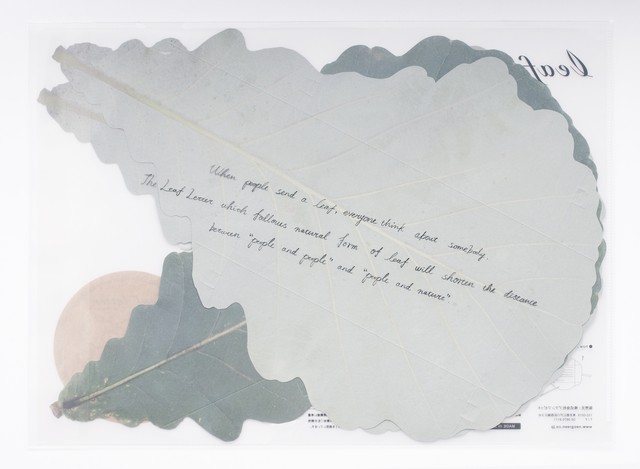 leaf
When people send a leaf, everyone think about somebody.
The Leaf Letter which follows natural form of leaf will shorten the distance
between "people and people" and "people and nature".